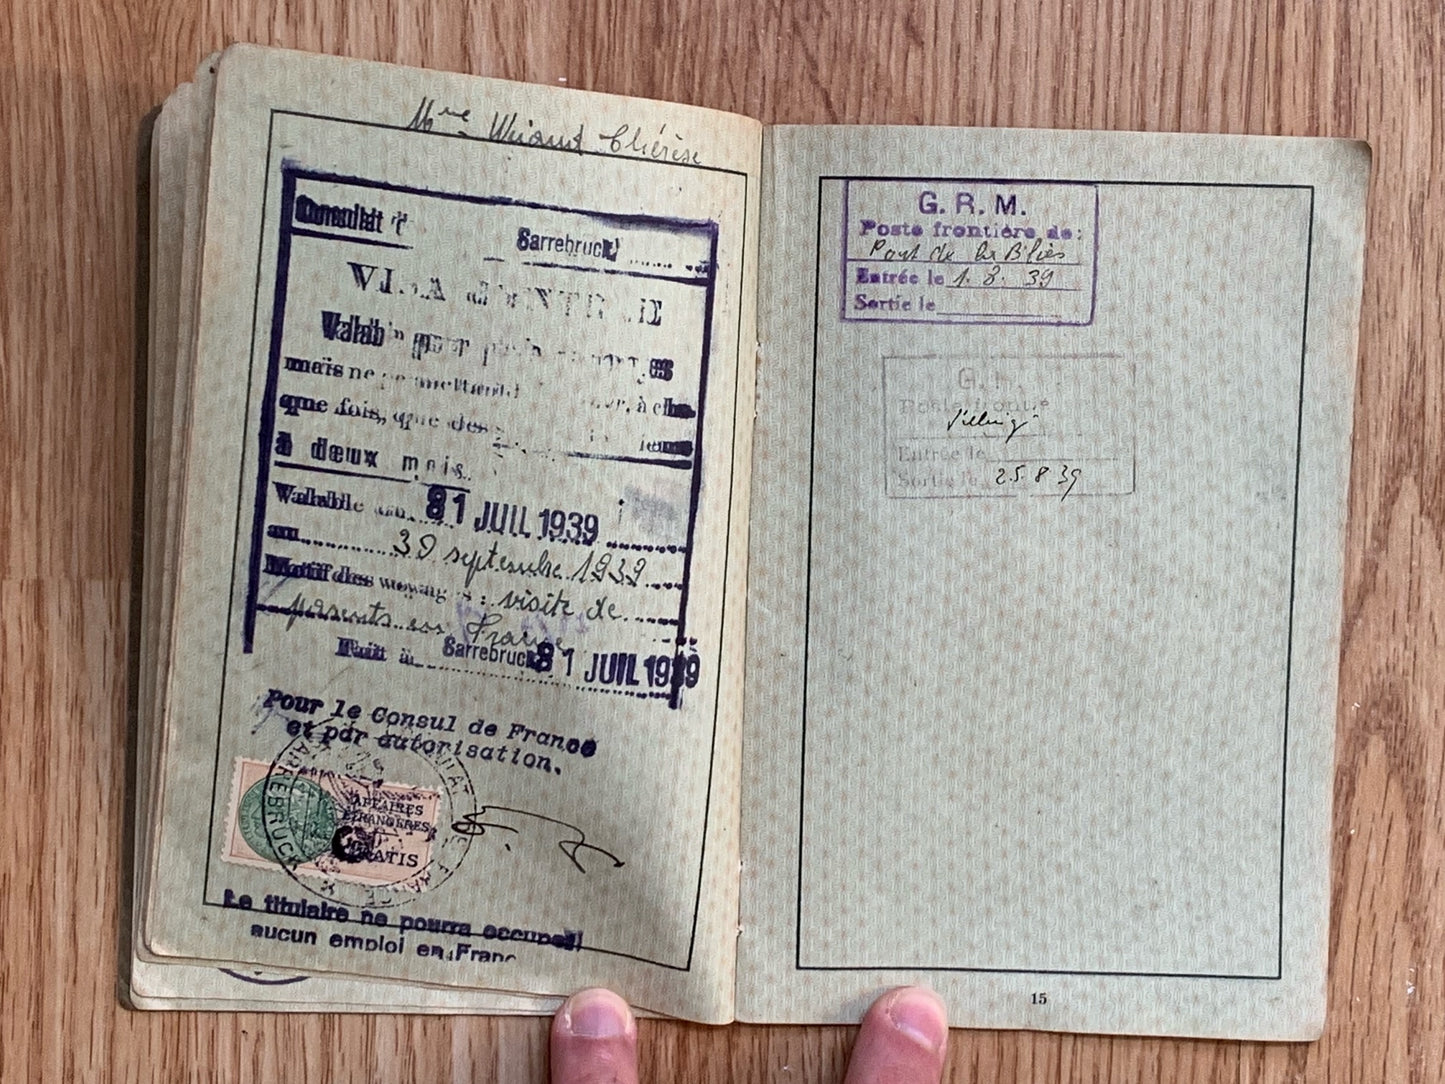 Mme Thérèse
Consulat
Sarrebruck
VISA D'ENTRÉE
Valable pour
mais ne permettant à cha-
que fois, que des
à deux mois.
Valable du 31 JUIL 1939
au 30 septembre 1939
Motif des voyages : visite de
parents en France
Fait à Sarrebruck 31 JUIL 1939
Pour le Consul de France
et par autorisation.
AFFAIRES
ÉTRANGÈRES
GRATIS
SARREBRUCK
Le titulaire ne pourra occuper
aucun emploi en France
G. R. M.
Poste frontière de:
Pont de la Blies
Entrée le 1. 8. 39
Sortie le
G. R. M.
Poste frontière
Entrée le
Sortie le 25 8 39
15